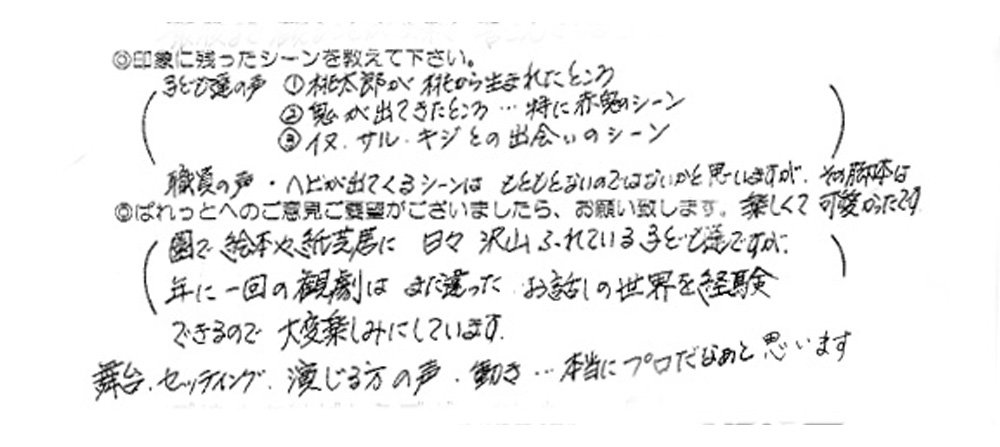 ◎印象に残ったシーンを教えて下さい。
子ども達の声 ①桃太郎が桃から生まれたところ
②鬼が出てきたところ…特に赤鬼のシーン
③イヌ・サル・キジとの出会いのシーン
職員の声・ヘビが出てくるシーンは もともとないのではないかと思いますが、その脚本は
楽しくて可愛かったです
◎ぱれっとへのご意見ご要望がございましたら、お願い致します。
園で絵本や紙芝居に 日々沢山ふれている子ども達ですが、
年に一回の観劇は また違った お話しの世界を経験
できるので 大変楽しみにしています。
舞台、セッティング、演じる方の声・動き…本当にプロだなあと思います